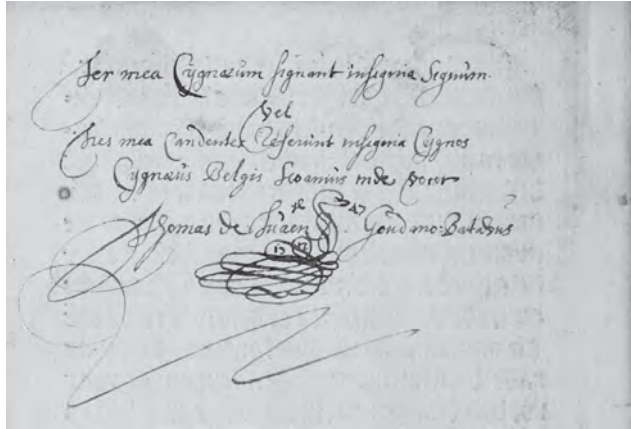 Ter mea Cÿgnæum signant insignia Signum.
vel
Tres mea Candentes Referunt insignia Cÿgnos
Cÿgnæus Belgis inde vocor
16 47
Thomas de Suaen Goudano: Batavus